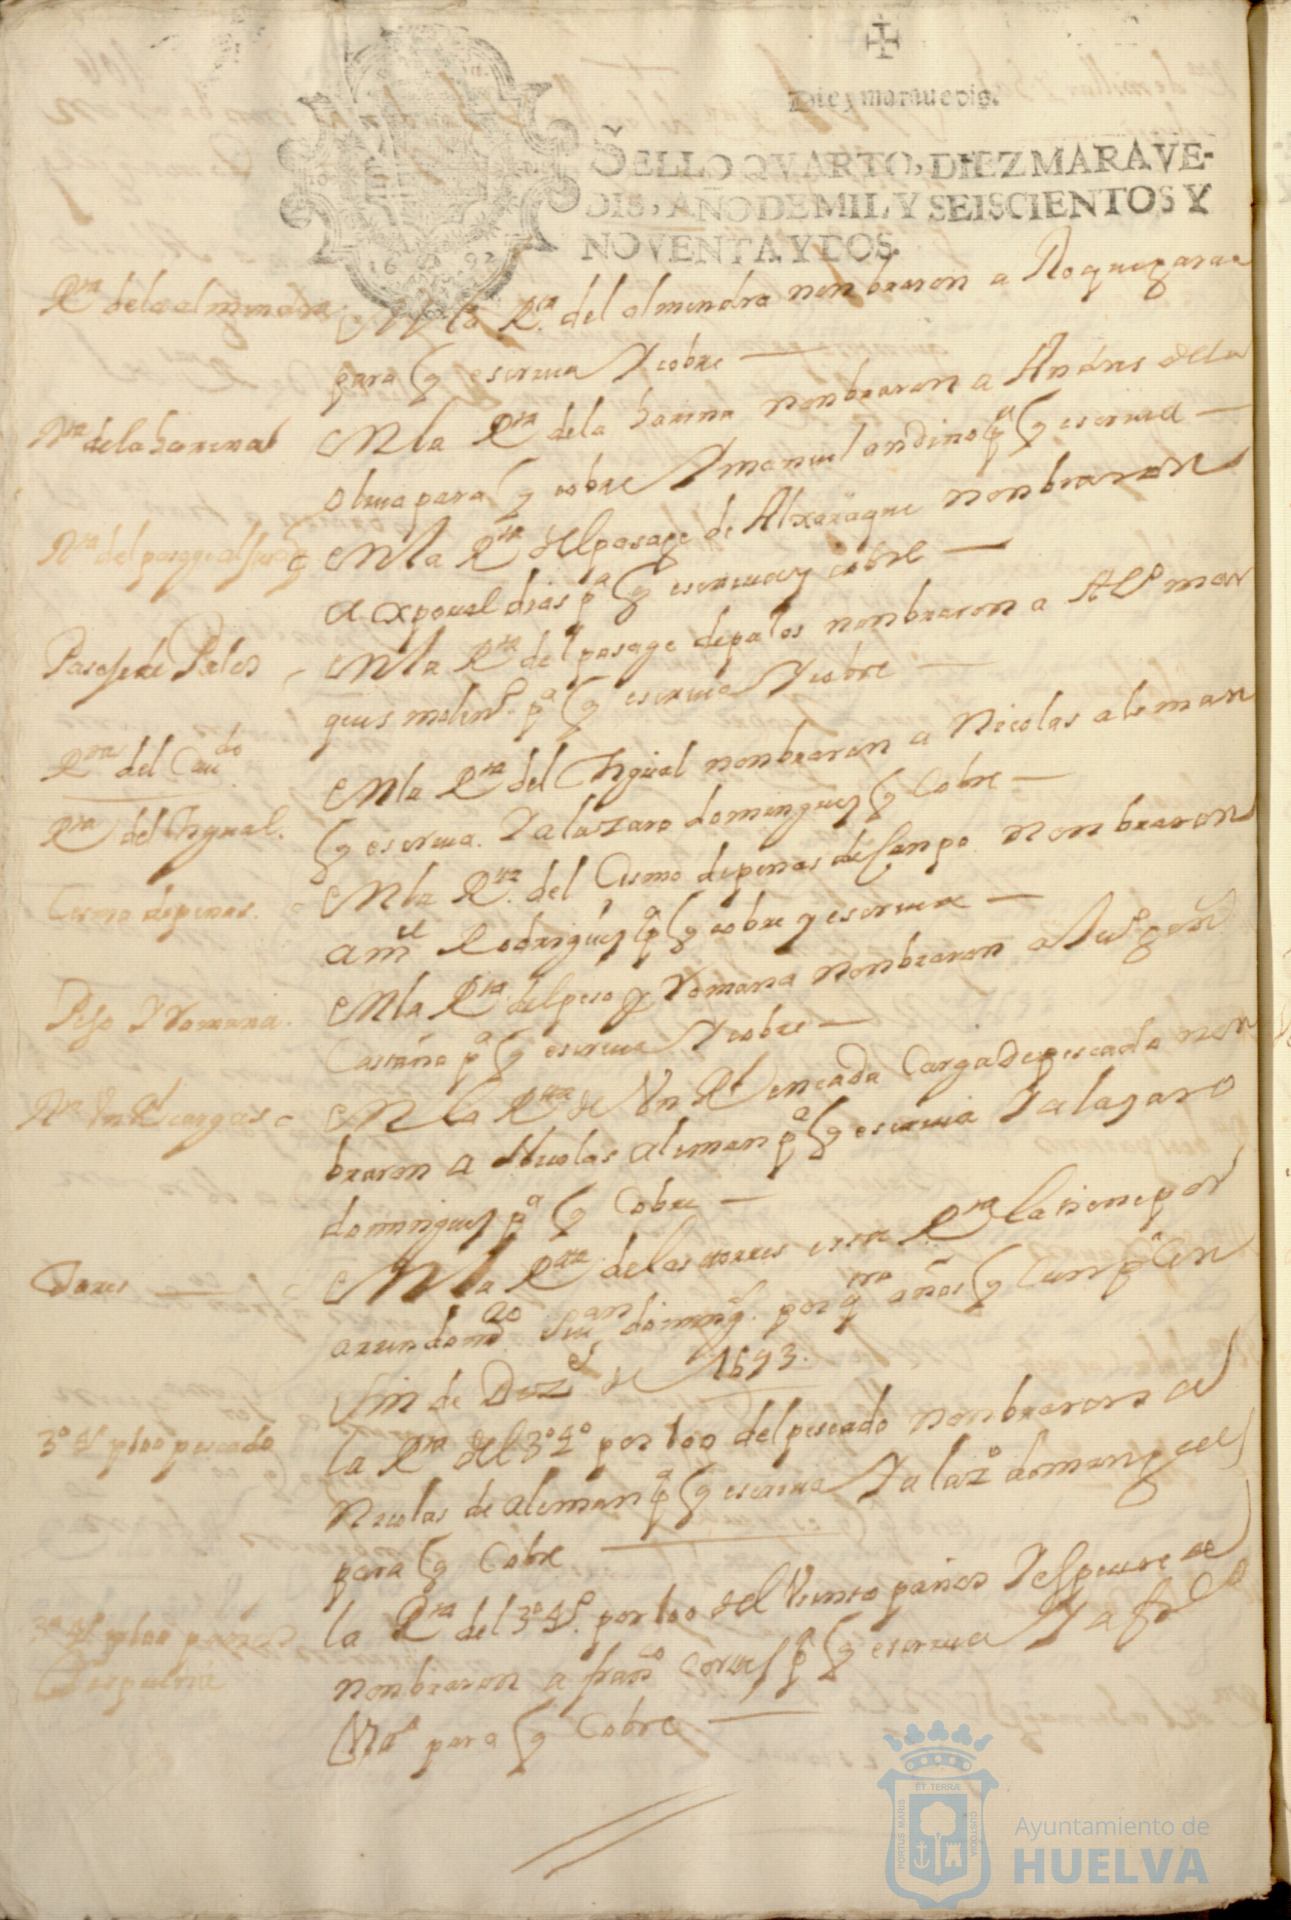 Diez marauedis.
SELLO QVARTO, DIEZ MARAVE-
DIS, AÑO DE MIL Y SEISCIENTOS Y
NOVENTA Y DOS.
1692
Rta de la almendra
En la Rta del almendra nonbraron a Roque
para q escriua Y cobre
Rta de la harina
En la Rta de la harina nonbraron a Andres de la
oliua para q cobre Y manuel andino pa q escriua
Rta del pasage
En la Rta del pasage de Alxaraque nonbraron
a xpoual dias pa q escriua y cobre
Pasaje de Palos
En la Rta del pasage de palos nonbraron a Alo mar
ques pa q escriua Y cobre
Rta del Cau.do
Rta del
En la Rta del nonbraron a Nicolas aleman
q escriua. Y a lazaro dominguez q Cobre
de penas.
En la Rta del de penas de nonbraron
a ml Rodriguez pa q cobre y escriua
Peso Y Romana.
En la Rta del peso y Romana nonbraron a
Castaño pa q escriua Y cobre
Rta Vn Rl cargas
En la Rta de Vn Rl en cada Carga de pescado non
braron a Nicolas aleman pa q escriua Y a lazaro
dominguez pa q Cobre
Torres
En la Rta de las torres esta Rta la tiene por
arrendamto Juan doming. por qtro años q
fin de Dize de 1693.
3o 4o p 100 pescado
la Rta del 3o 4o por 100 del pescado nonbraron a
Nicolas de aleman pa q escriua Y a lazo domingues
para q Cobre
3o 4o p 100
la Rta del 3o 4o por 100 del Viento
nonbraron a franco pa q escriua Y a
para q Cobre
PORTUS MARIS
ET TERRÆ
CUSTODIA
Ayuntamiento de
HUELVA